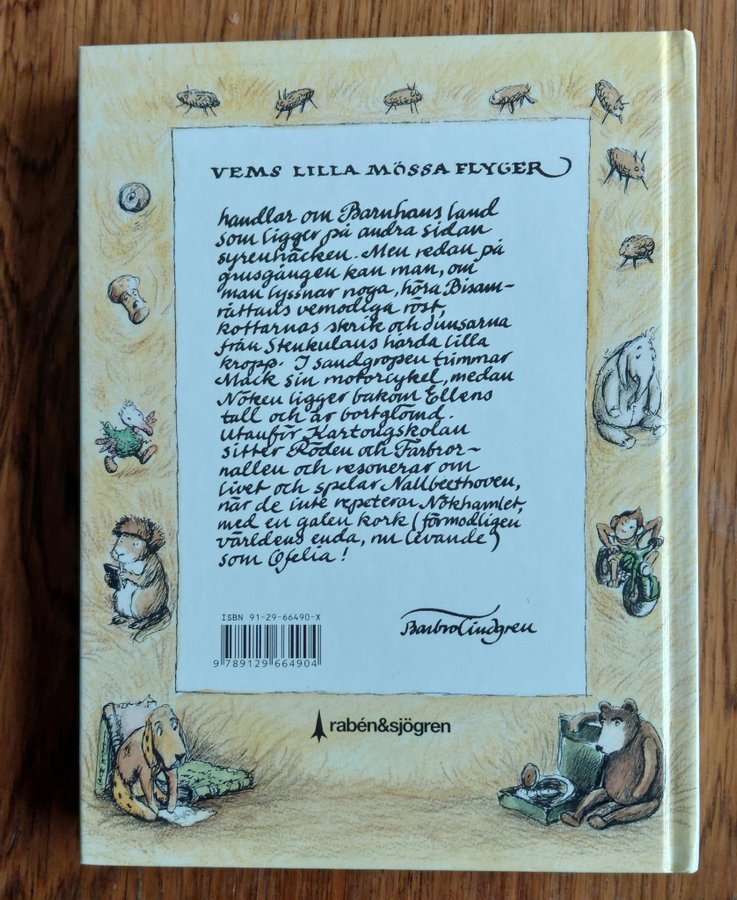 VEMS LILLA MÖSSA FLYGER
handlar om Barnhans land
som ligger på andra sidan
syrenhäcken. Men redan på
grusgången kan man, om
man lyssnar noga, höra Bisam-
råttans vemodiga röst,
kottarnas skrik och dunsarna
från Stenkulans hårda lilla
kropp. I sandgropen trimmar
Mack sin motorcykel, medan
Nöken ligger bakom Ellens
tall och är bortglömd.
Utanför Kartongskolan
sitter Röden och Farbror-
nallen och resonerar om
livet och spelar Nallbeethoven,
när de inte repeterar Nökhamlet,
med en galen kork (förmodligen
världens enda, nu levande)
som Ofelia!
ISBN 91-29-66490-X
9 789129 664904
Barbro Lindgren
rabén&sjögren